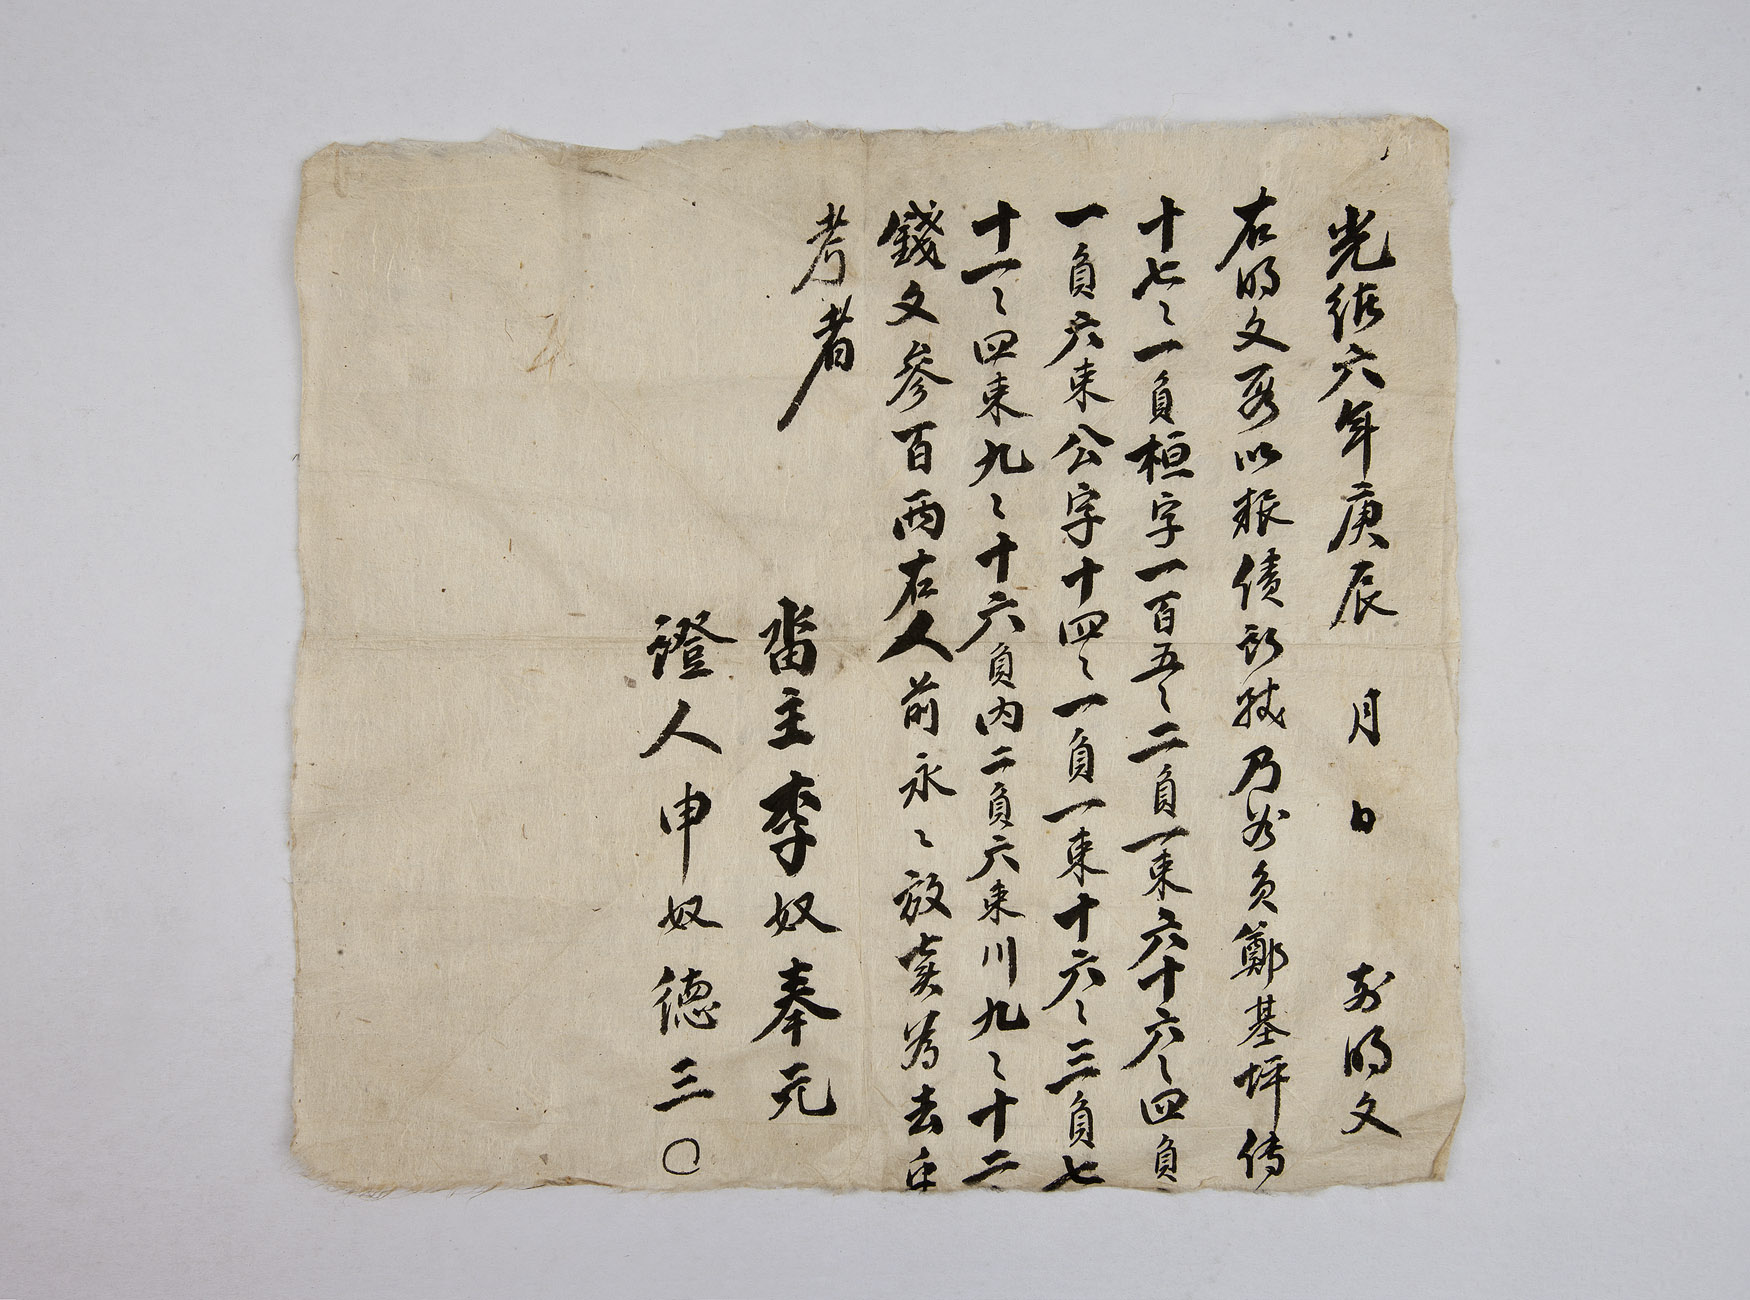 光緖六年庚辰 月 日 前明文
右明文段以賑債所致乃 員鄭基坪伏
十七〻一負桓字一百五〻二負一束六十六〻四負
一負六束公字十四〻一負一束十六〻三負七
十一〻四束九〻十六負內二負六束川九〻十二
錢文參百兩右人前永〻放賣爲去乎
考者
畓主李奴奉元
證人申奴德三〇